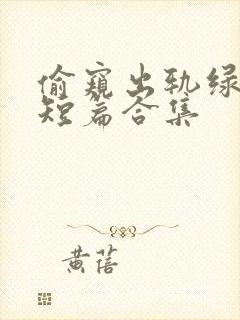 偷窥出轨绿
短篇合集
黄蓓